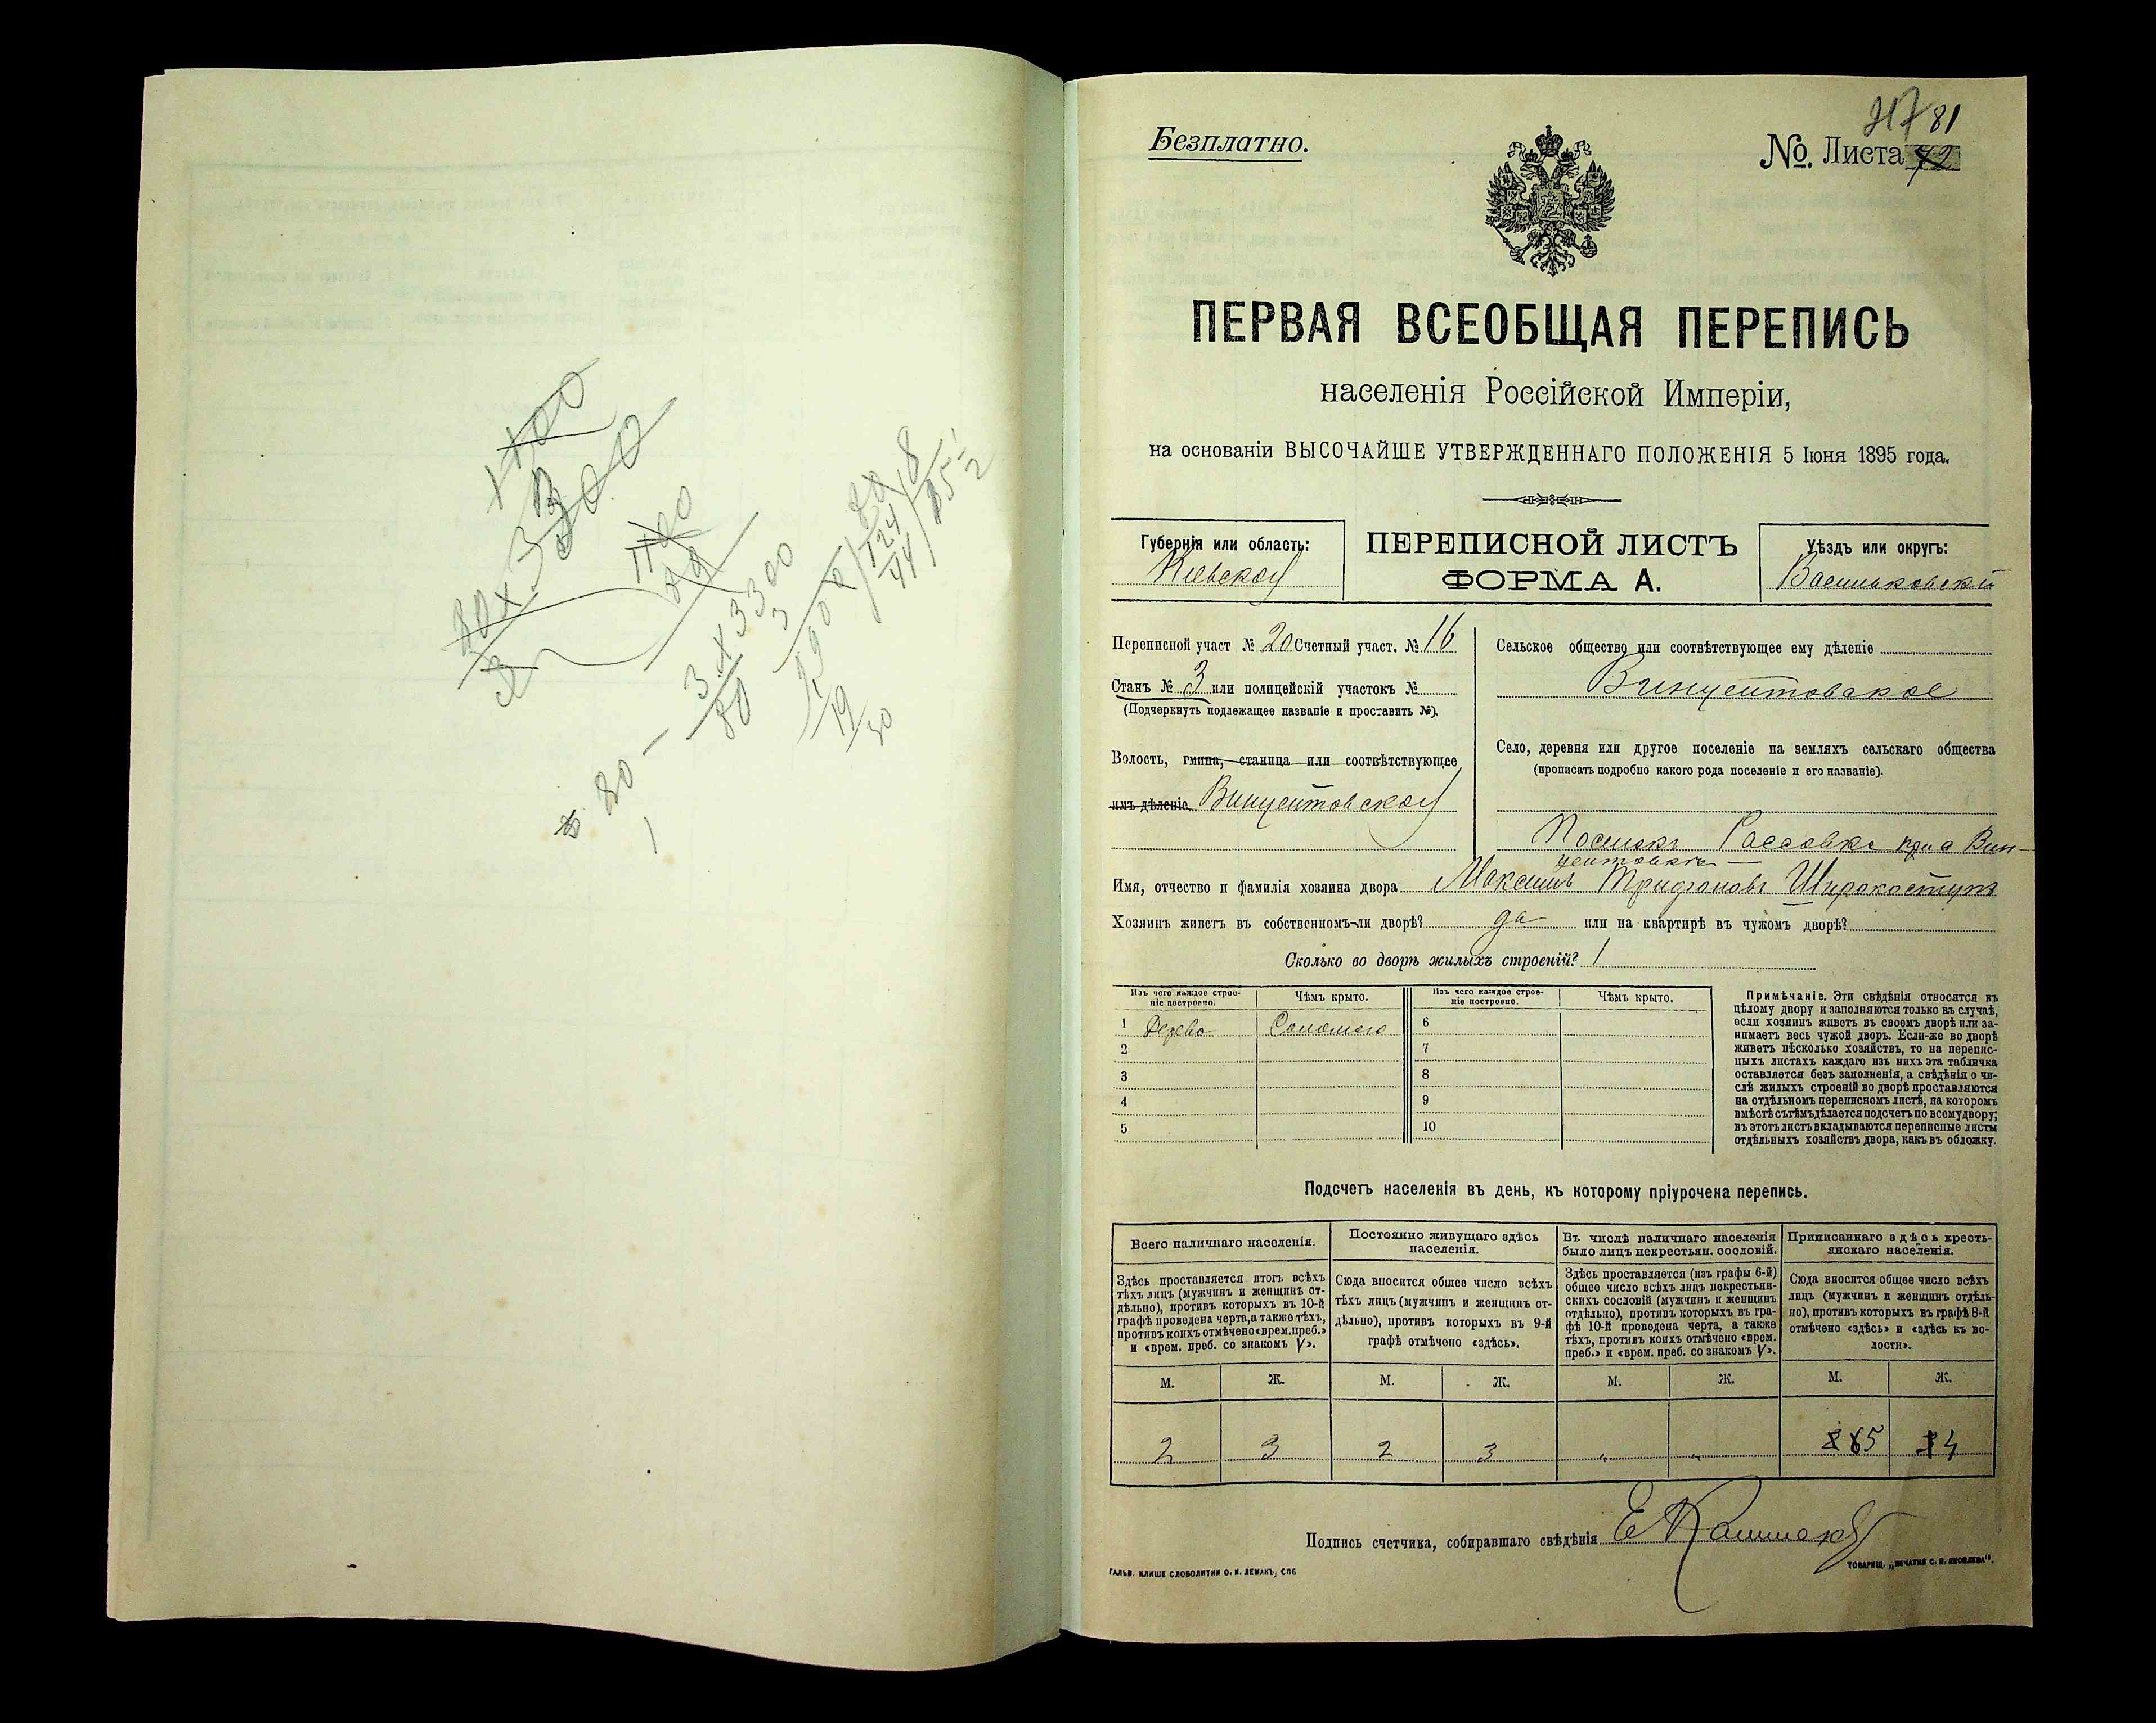 1100
3300
80 x 3
1100
80
3 x 3300
80
3
9900
80
124
44
8
85
1/2
19
30
80 —
Безплатно.
217 81
№. Листа 72
ПЕРВАЯ ВСЕОБЩАЯ ПЕРЕПИСЬ
населенія Россійской Имперіи,
на основаніи ВЫСОЧАЙШЕ УТВЕРЖДЕННАГО ПОЛОЖЕНІЯ 5 Іюня 1895 года.
Губернія или область:
Кіевская
ПЕРЕПИСНОЙ ЛИСТЪ
ФОРМА А.
Уѣздъ или округъ:
Васильковскій
Переписной участ № 20 Счетный участ. № 16
Станъ № 3 или полицейскій участокъ №
(Подчеркнуть подлежащее названіе и проставить №).
Волость, гмина, станица или соотвѣтствующее
имъ дѣленіе Винцентовская
Сельское общество или соотвѣтствующее ему дѣленіе
Винцентовское
Село, деревня или другое поселеніе на земляхъ сельскаго общества
(прописать подробно какого рода поселеніе и его названіе).
Поселокъ Рассовка при с Вин-
центовкѣ —
Имя, отчество и фамилія хозяина двора Максимъ Трифоновъ Широкоступъ
Хозяинъ живетъ въ собственномъ-ли дворѣ? да или на квартирѣ въ чужомъ дворѣ?
Сколько во дворѣ жилыхъ строеній? 1
Изъ чего каждое строе-
ніе построено.
Чѣмъ крыто.
Изъ чего каждое строе-
ніе построено.
Чѣмъ крыто.
1 Дерево Соломою 6
2 7
3 8
4 9
5 10
Примѣчаніе. Эти свѣдѣнія относятся къ
цѣлому двору и заполняются только въ случаѣ,
если хозяинъ живетъ въ своемъ дворѣ или за-
нимаетъ весь чужой дворъ. Если-же во дворѣ
живетъ нѣсколько хозяйствъ, то на перепис-
ныхъ листахъ каждаго изъ нихъ эта табличка
оставляется безъ заполненія, а свѣдѣнія о чи-
слѣ жилыхъ строеній во дворѣ проставляются
на отдѣльномъ переписномъ листѣ, на которомъ
вмѣстѣ съ тѣмъ дѣлается подсчетъ по всему двору;
въ этотъ листъ вкладываются переписные листы
отдѣльныхъ хозяйствъ двора, какъ въ обложку.
Подсчетъ населенія въ день, къ которому пріурочена перепись.
Всего наличнаго населенія.
Здѣсь проставляется итогъ всѣхъ
тѣхъ лицъ (мужчинъ и женщинъ от-
дѣльно), противъ которыхъ въ 10-й
графѣ проведена черта, а также тѣхъ,
противъ коихъ отмѣчено «врем. преб.»
и «врем. преб. со знакомъ V».
Постоянно живущаго здѣсь
населенія.
Сюда вносится общее число всѣхъ
тѣхъ лицъ (мужчинъ и женщинъ от-
дѣльно), противъ которыхъ въ 9-й
графѣ отмѣчено «здѣсь».
Въ числѣ наличнаго населенія
было лицъ некрестьян. сословій.
Здѣсь проставляется (изъ графы 6-й)
общее число всѣхъ лицъ некрестьян-
скихъ сословій (мужчинъ и женщинъ
отдѣльно), противъ которыхъ въ гра-
фѣ 10-й проведена черта, а также
тѣхъ, противъ коихъ отмѣчено «врем.
преб.» и «врем. преб. со знакомъ V».
Приписаннаго здѣсь кресть-
янскаго населенія.
Сюда вносится общее число всѣхъ
лицъ (мужчинъ и женщинъ отдѣль-
но), противъ которыхъ въ графѣ 8-й
отмѣчено «здѣсь» и «здѣсь къ во-
лости».
М. Ж. М. Ж. М. Ж. М. Ж.
2 3 2 3 „ „ 5 4
Подпись счетчика, собиравшаго свѣдѣнія
ГАЛЬВ. КЛИШЕ СЛОВОЛИТНИ О. И. ЛЕМАНЪ, СПБ
ТОВАРИЩ. „ПЕЧАТНЯ С. П. ЯКОВЛЕВА".